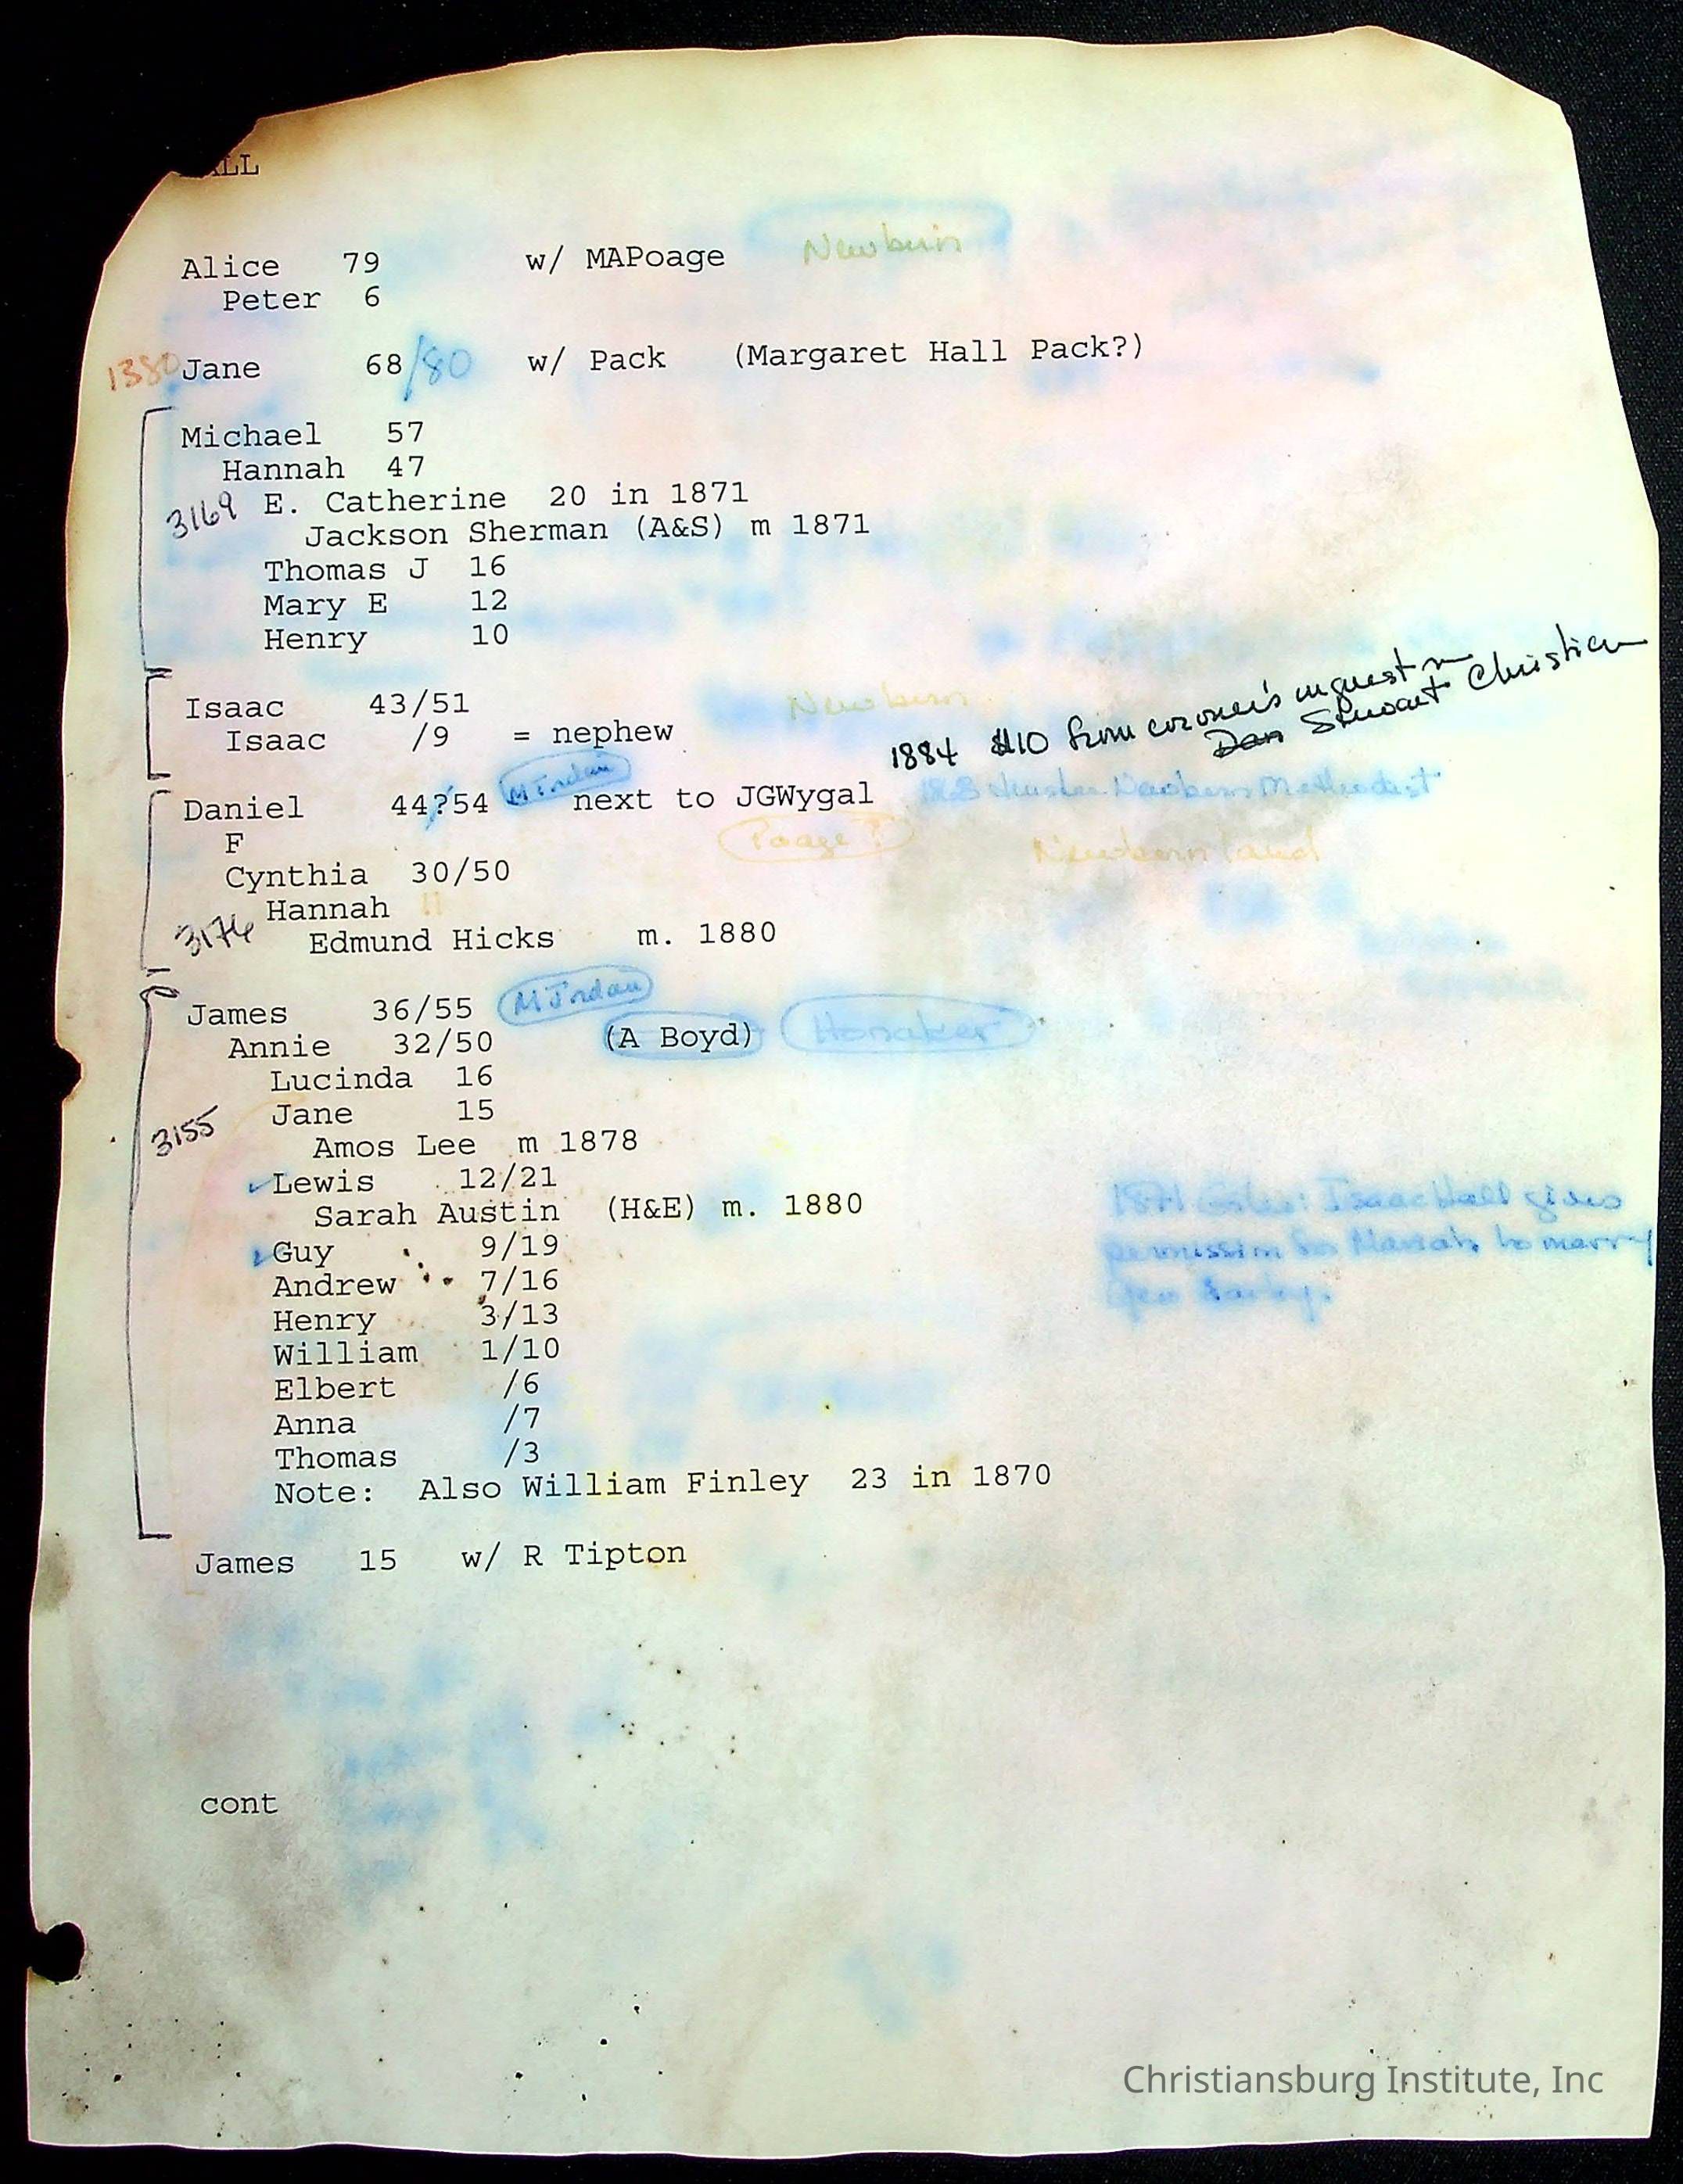 ALL
Alice 79 w/ MAPoage Newbern
Peter 6
1380 Jane 68/80 w/ Pack (Margaret Hall Pack?)
Michael 57
Hannah 47
3169 E. Catherine 20 in 1871
Jackson Sherman (A&S) m 1871
Thomas J 16
Mary E 12
Henry 10
Isaac 43/51 Newbern
Isaac /9 = nephew
1884 $10 from coroner's inquest
Dan Stuart Christian
Daniel 44?54 M Jordan next to JGWygal 1868 trustee Newbern Methodist
F Poage? Newbern land
Cynthia 30/50
Hannah 11
3174 Edmund Hicks m. 1880
James 36/55 M Jordan
Annie 32/50 (A Boyd) Honaker
Lucinda 16
Jane 15
3155 Amos Lee m 1878
Lewis 12/21
Sarah Austin (H&E) m. 1880
1871 Giles: Isaac Hall gives
permission for Mariah to marry
Guy 9/19
Andrew 7/16
Henry 3/13
William 1/10
Elbert /6
Anna /7
Thomas /3
Note: Also William Finley 23 in 1870
James 15 w/ R Tipton
cont
Christiansburg Institute, Inc